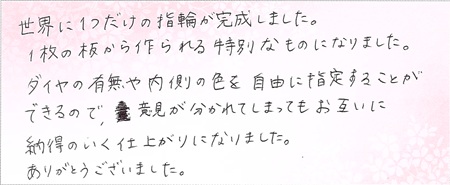 世界に1つだけの指輪が完成しました。
1枚の板から作られる特別なものになりました。
ダイヤの有無や内側の色を自由に指定することが
できるので、意見が分かれてしまってもお互いに
納得のいく仕上がりになりました。
ありがとうございました。